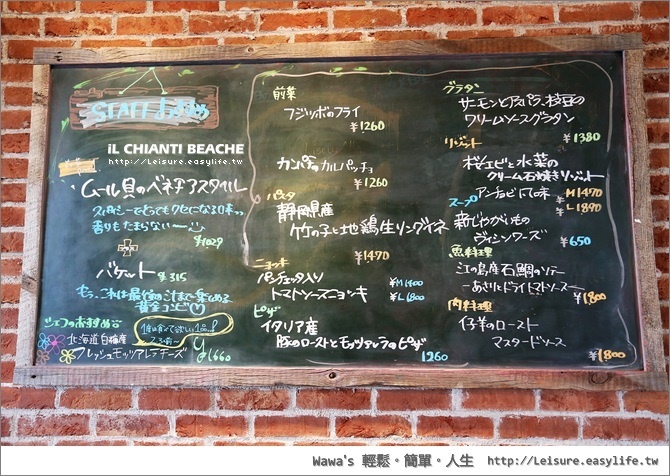 STAFF おすすめ
iL CHIANTI BEACHE
http://Leisure.easylife.tw
ムール貝のベネチアスタイル
スパイシーでとってもクセになる味っ
香りもたまらない〜
¥1029
バゲット ¥315
もう、これは最後の汁まで楽しめる
黄金コンビ♡
シェフのおすすめ
1度は食べて欲しい1品!
2〜3人前〜
北海道白糠産
フレッシュモッツアレラチーズ
¥1660
前菜
フジツボのフライ
¥1260
カンパチのカルパッチョ
¥1260
パスタ
静岡県産
竹の子と地鶏生リングイネ
¥1470
ニョッキ
パンチェッタ入り
トマトソースニョッキ
M1400
L1800
ピザ
イタリア産
豚のローストとモッツァレラのピザ
1260
グラタン
サーモンとアスパラ、枝豆の
クリームソースグラタン
¥1380
リゾット
桜エビと水菜の
クリーム石焼きリゾット
アンチョビ味 M1470
L1890
スープ
新じゃがいもの
ヴィシソワーズ ¥650
魚料理
江の島産石鯛のソテー
—あさりとドライトマトソース—
¥1800
肉料理
仔羊のロースト
マスタードソース
¥1800
Wawa's 輕鬆。簡單。人生 http://Leisure.easylife.tw